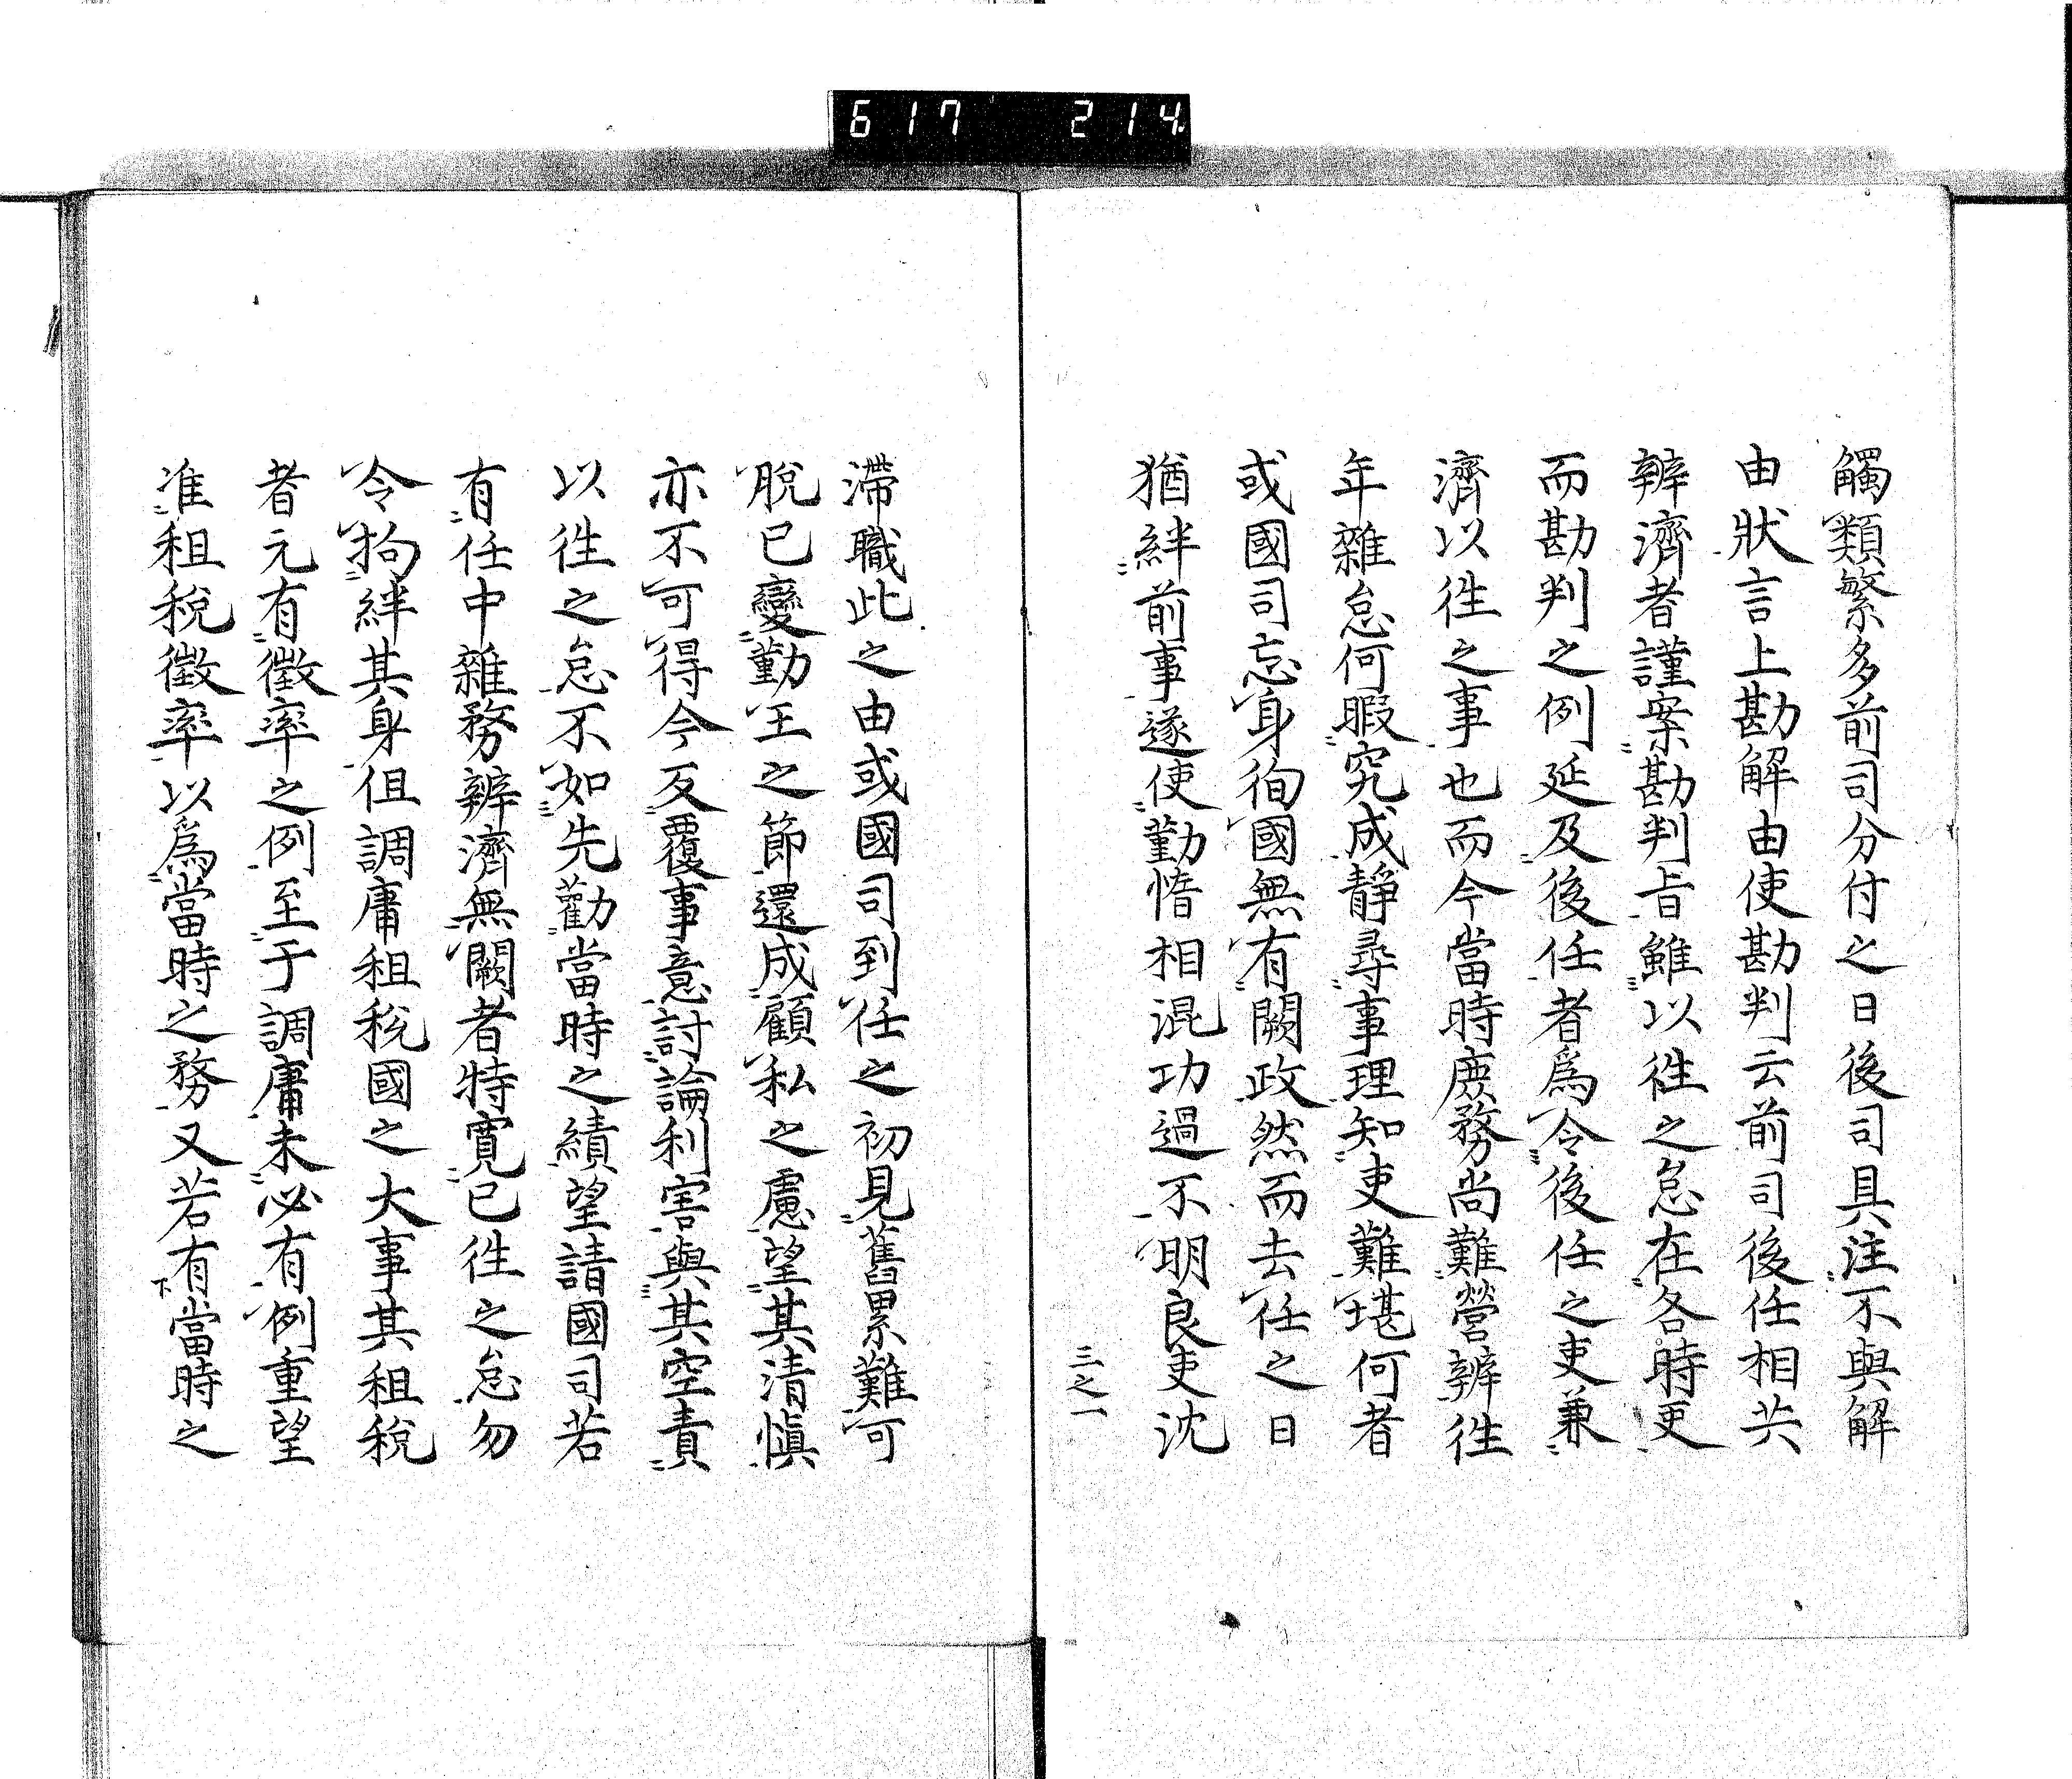 617 214
觸類繁多前司分付之日後司具注不與解
由狀言上勘解由使勘判云前司後任相共
辨濟者謹案勘判旨雖以徃之怠在各時吏
而勘判之例延及後任者爲令後任之吏兼
濟以徃之事也而今當時庶務尚難營辨徃
年雜怠何暇究成靜尋事理知吏難堪何者
或國司忘身徇國無有闕政然而去任之日
猶絆前事遂使勤惰相混功過不明良吏沈
三之一
滯職此之由或國司到任之初見舊累難可
脫已變勤王之節還成顧私之慮望其清愼
亦不可得今反覆事意討論利害與其空責
以徃之怠不如先勸當時之績望請國司若
有任中雜務辨濟無闕者特寛已徃之怠勿
令拘絆其身但調庸租稅國之大事其租稅
者元有徵率之例至于調庸未必有例重望
准租稅徵率以爲當時之務又若有當時之
下